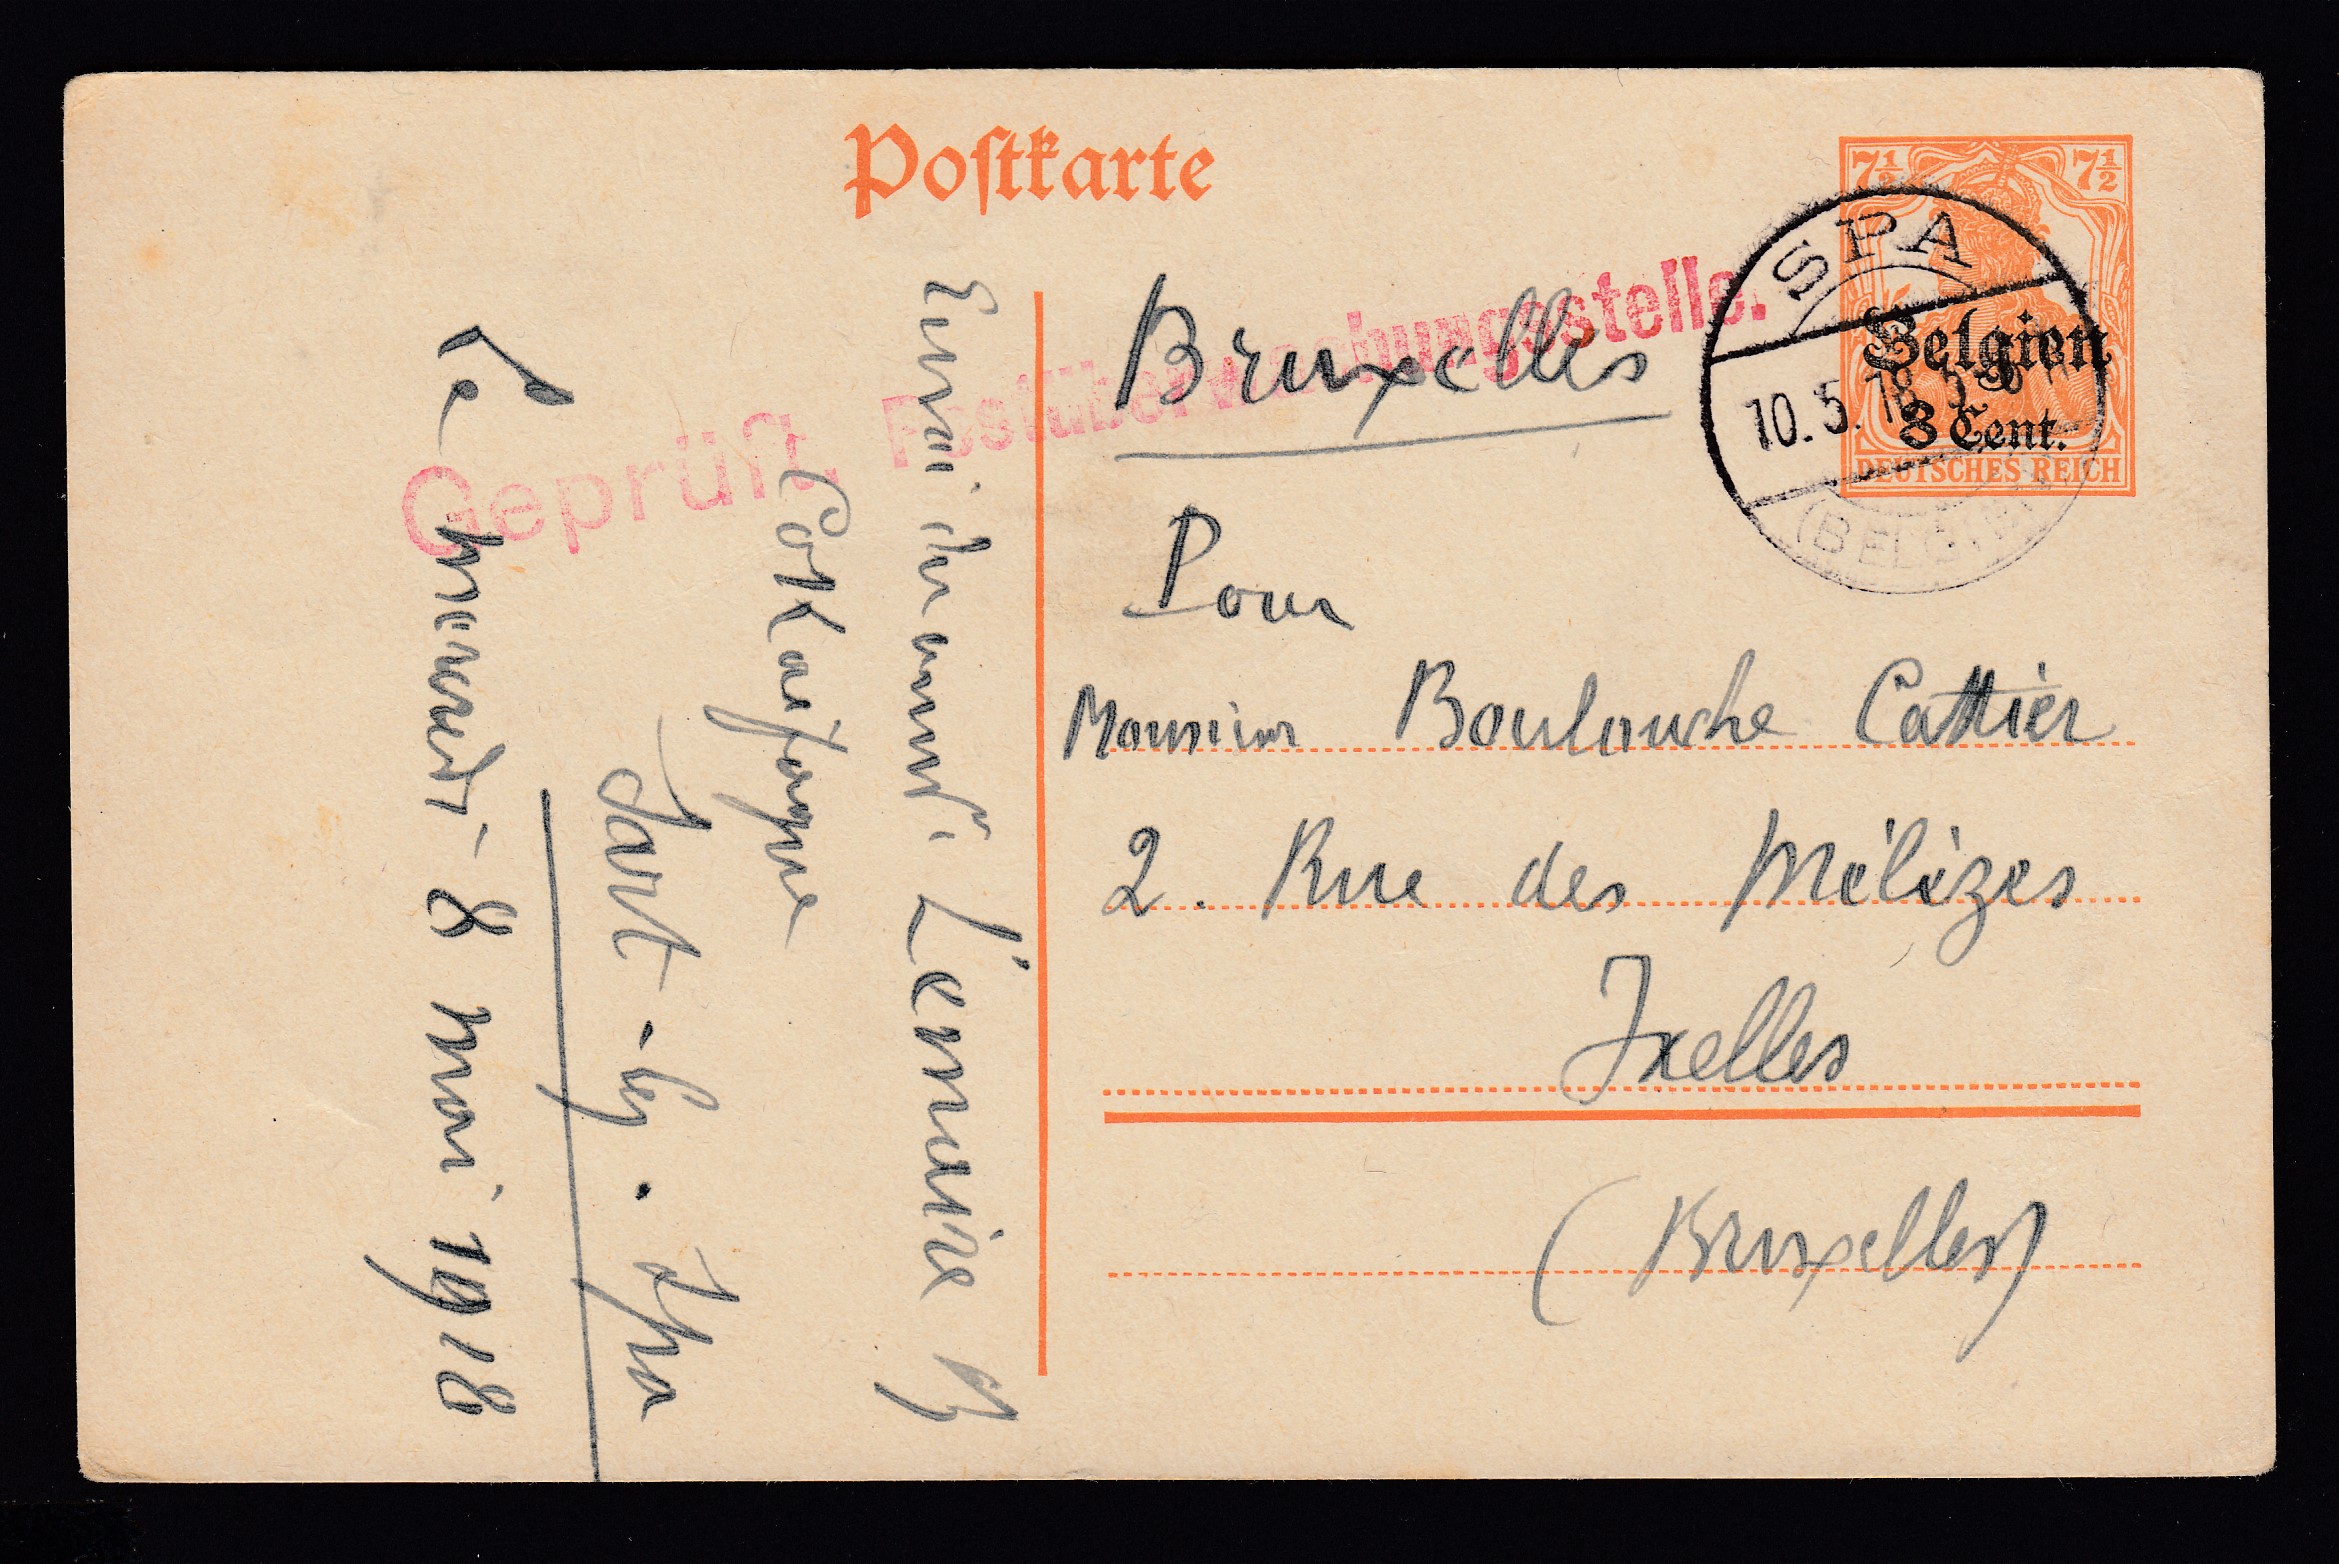 Postkarte
7½ 7½
SPA
10.5.18
(BELGIEN)
Belgien
8 Cent.
DEUTSCHES REICH
Geprüft, Postüberwachungsstelle.
Bruxelles
Pour
Monsieur Boulouche Cattier
2. Rue des Mélèzes
Ixelles
(Bruxelles)
Envoi de L'emaire
Cokaifagne
Sart-lez-Spa
Le mercredi 8 mai 1918